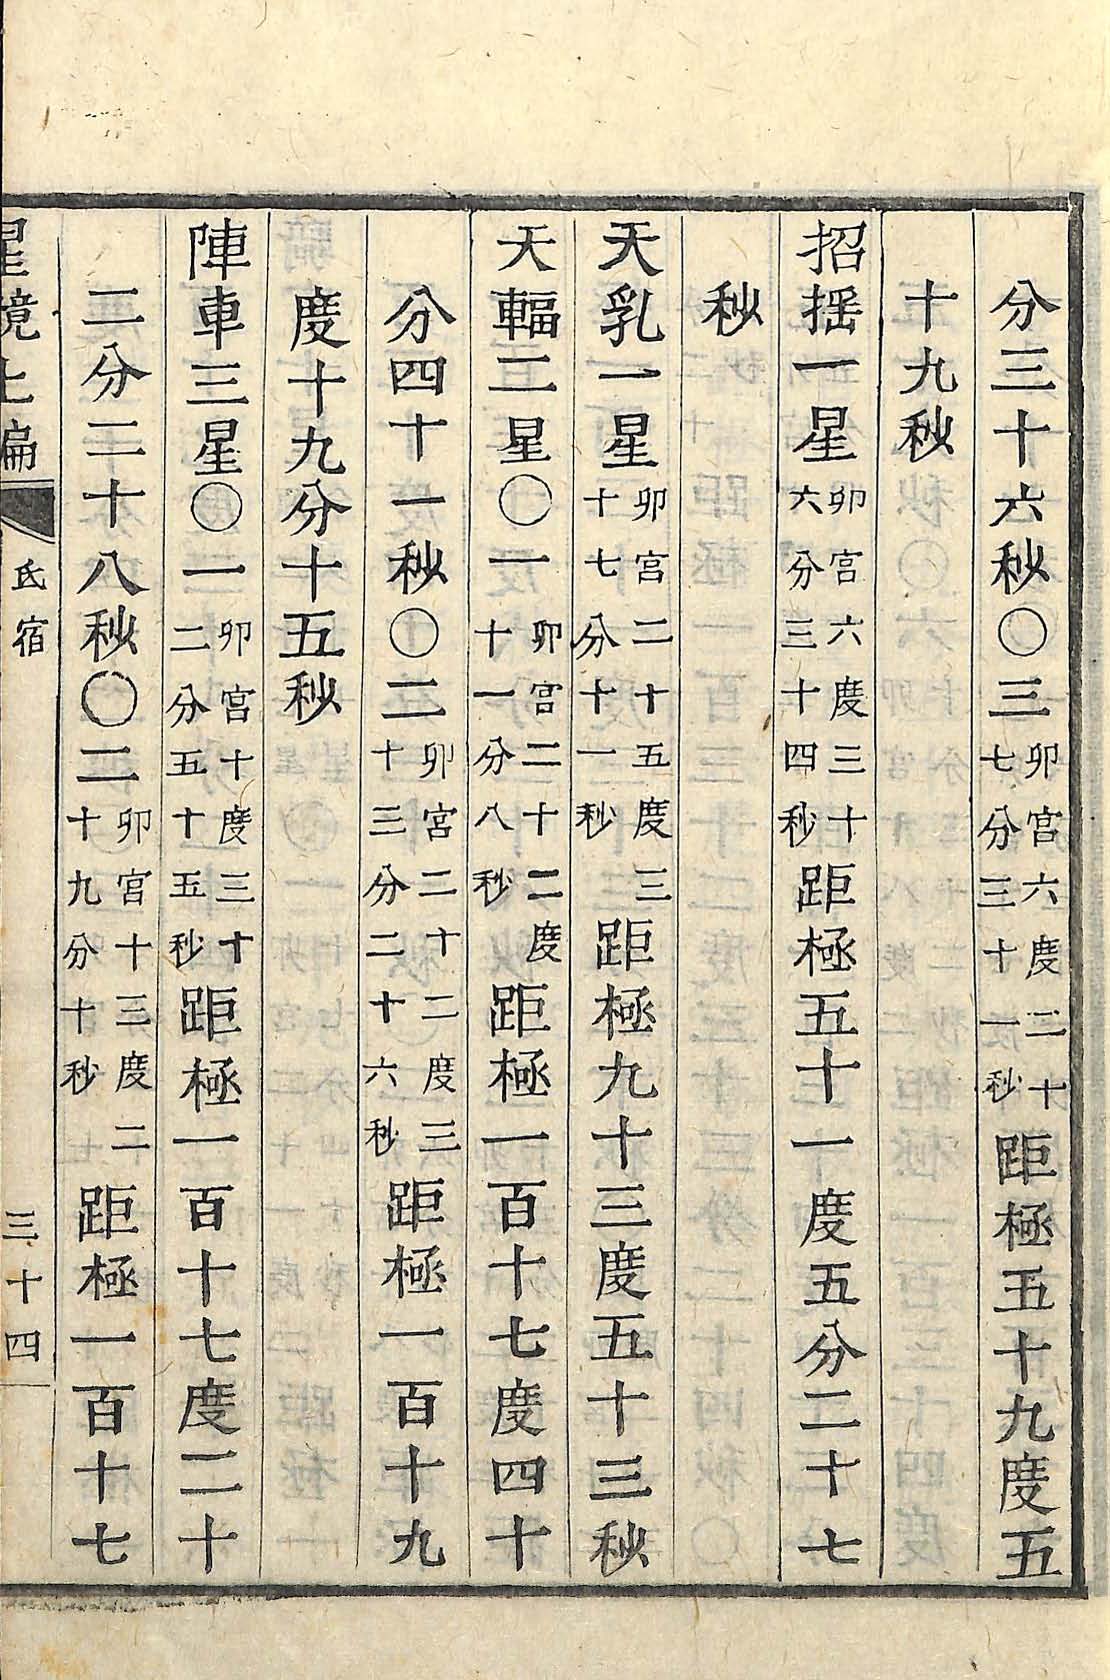 分三十六秒〇三卯宮六度二十七分三十一秒距極五十九度五
十九秒
招搖一星卯宮六度三十六分三十四秒距極五十一度五分二十七
秒
天乳一星卯宮二十五度三十七分十一秒距極九十三度五十三秒
天輻二星〇一卯宮二十二度十一分八秒距極一百十七度四十
分四十一秒〇二卯宮二十二度三十三分二十六秒距極一百十九
度十九分十五秒
陣車三星〇一卯宮十度三十二分五十五秒距極一百十七度二十
二分二十八秒〇二卯宮十三度二十九分十秒距極一百十七
星鏡上編
氐宿
三十四